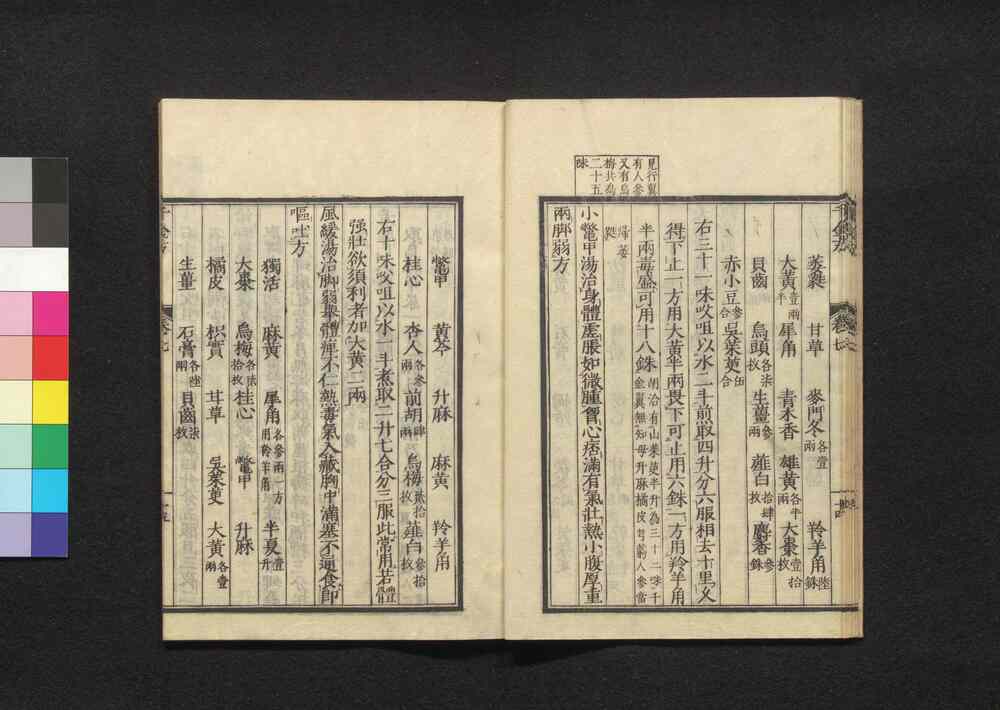 見行冀
有人參
又有烏
梅共為
二十五
味
萎蕤 甘草 麥門冬各壹兩 羚羊角陸銖
大黃壹兩半 犀角 青木香 雄黃各半兩 大棗壹拾枚
貝齒 烏頭各柒枚 生薑參兩 薤白拾肆枚 麝香參銖
赤小豆參合 吳茱萸伍合
右三十一味㕮咀以水二斗煎取四升分六服相去十里又
得下止一方用大黃半兩畏下可止用六銖一方用羚羊角
半兩毒盛可用十八銖
胡洽有山茱萸半升為三十二味千
金翼無知母升麻橘皮芎藭人參當
歸萎蕤
小鼈甲湯治身體虛脹如微腫胷心痞滿有氣壯熱小腹厚重
兩脚弱方
鼈甲 黃芩 升麻 麻黃 羚羊角
桂心 杏人各參兩 前胡肆兩 烏梅貳拾枚 薤白參拾枚
右十味㕮咀以水一斗煮取二升七合分三服此常用若體
强壯欲須利者加大黃二兩
風緩湯治脚弱舉體痺不仁熱毒氣入藏胸中滿塞不通食即
嘔吐方
獨活 麻黃 犀角各參兩一方用羚羊角 半夏壹升
大棗 烏梅各柒拾枚 桂心 鼈甲 升麻
橘皮 枳實 甘草 吳茱萸 大黃各壹兩
生薑 石膏各陸兩 貝齒柒枚